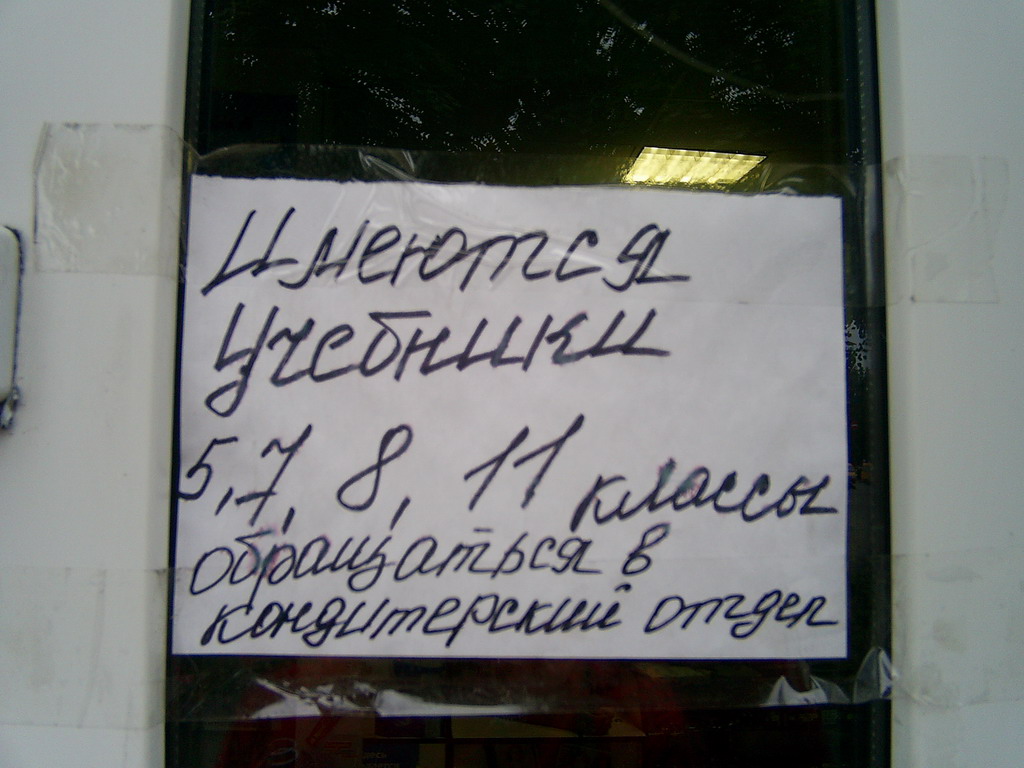 Имеются
учебники
5,7, 8, 11 классы
обращаться в
кондитерский отдел